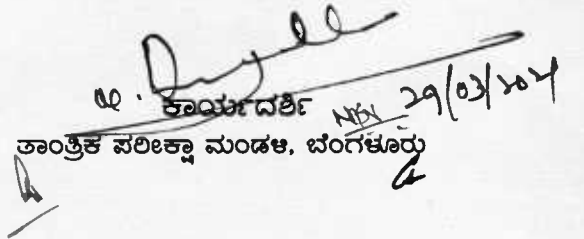 ಕಾರ್ಯದರ್ಶಿ
29/03/2021
ತಾಂತ್ರಿಕ ಪರೀಕ್ಷಾ ಮಂಡಳಿ, ಬೆಂಗಳೂರು